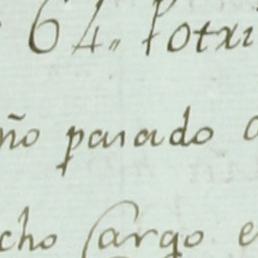 64. Potxi
ño pasado
cho Cargo e